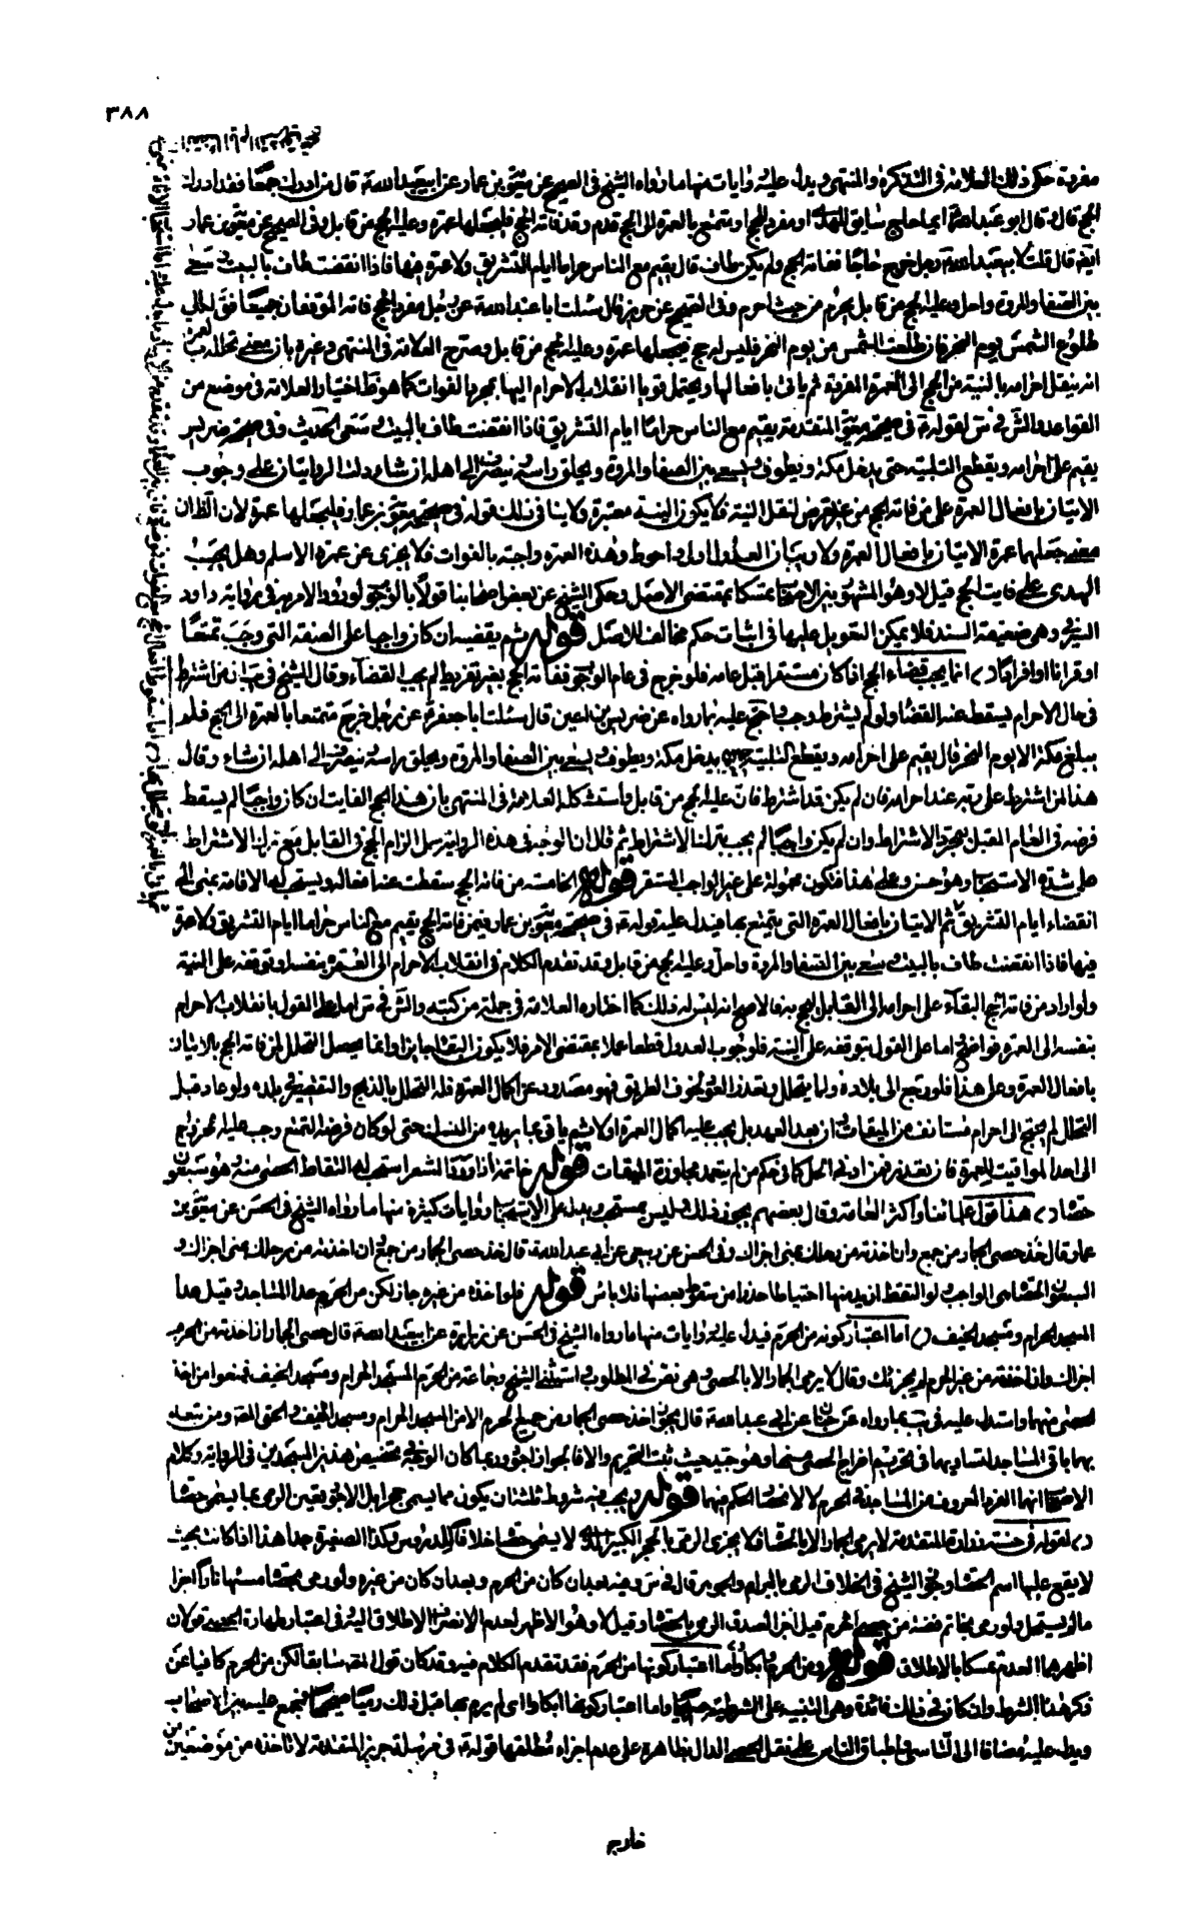 ٣٨٨
مفردة حكى ذلك العلامة فى التذكرة والمنتهى ويدل عليه روايات منها ما رواه الشيخ فى الصحيح عن معوية بن عمار عن ابيعبد الله ع قال من ادرك جمعا فقد ادرك
الحج قال وقال ابو عبد الله ع ايما حاج سابق للهدى او مفرد للحج او متمتع بالعمرة الى الحج قدم وقد فاته الحج فليجعلها عمرة وعليه الحج من قابل وفى الصحيح عن معوية بن عمار
ايضا قال قلت لابيعبد الله ع رجل خرج حاجا ففاته الحج ولم يكن طاف قال يقيم مع الناس حراما ايام التشريق ولا عمرة فيها فاذا انقضت طاف بالبيت وسعى
بين الصفا والمروة واحل وعليه الحج من قابل يحرم من حيث احرم وفى الصحيح عن حريز قال سئلت ابا عبد الله ع عن رجل مفرد الحج فاته الموقفان جميعا فق له الى
طلوع الشمس يوم النحر فان طلعت الشمس من يوم النحر فليس له حج فيجعلها عمرة وعليه الحج من قابل وصرح العلامة فى المنتهى وغيره بان معنى تحلله بالعمرة
انه ينقل احرامه بالنية من الحج الى العمرة المفردة ثم ياتى بافعالها ويحتمل قويا انقلاب الاحرام اليها بمجرد الفوات كما هو ظ اختيار العلامة فى موضع من
القواعد والش فى س لقوله ع فى صحيحة معوية المتقدمة يقيم مع الناس حراما ايام التشريق فاذا انقضت طاف بالبيت وسعى الحديث وفى صحيحة ضريس
يقيم على احرامه ويقطع التلبية حتى يدخل مكة ويطوف ويسعى بين الصفا والمروة ويحلق راسه وينصرف الى اهله ان شاء دلت الروايتان على وجوب
الاتيان بافعال العمرة على من فاته الحج من غير تعرض لنقل النية فلا يكون النية معتبرة ولا ينافى ذلك قوله فى صحيحة معوية بن عمار فليجعلها عمرة لان الظ ان
معنى جعلها عمرة الاتيان بافعال العمرة ولا ريب ان العدول اولى واحوط وهذه العمرة واجبة بالفوات فلا يجزى عن عمرة الاسلام وهل يجب
الهدى على فايت الحج قيل لا وهو المشهور بين الاصحاب تمسكا بمقتضى الاصل وحكى الشيخ عن بعض اصحابنا قولا بالوجوب لورود الامر به فى رواية داود
الرقى وهى ضعيفة السند فلا يمكن التعويل عليها فى اثبات حكم مخالف للاصل قوله ثم يقضيه ان كان واجبا على الصفة التى وجبت تمتعا
او قرانا او افرادا انما يجب قضاء الحج اذا كان مستقرا قبل عامه فلو خرج فى عام الوجوب ففاته الحج بغير تفريط لم يجب القضاء وقال الشيخ فى يب ان من اشترط
فى حال الاحرام يسقط عنه القضاء ولو لم يشترط وجب واحتج عليه بما رواه عن ضريس بن اعين قال سئلت ابا جعفر ع عن رجل خرج متمتعا بالعمرة الى الحج فلم
يبلغ مكة الا يوم النحر قال يقيم على احرامه ويقطع التلبية حين يدخل مكة ويطوف ويسعى بين الصفا والمروة ويحلق راسه وينصرف الى اهله ان شاء وقال
هذا لمن اشترط على ربه عند احرامه فان لم يكن قد اشترط فان عليه الحج من قابل واستشكله العلامة فى المنتهى بان هذا الحج الفايت ان كان واجبا لم يسقط
فرضه فى العام المقبل بمجرد الاشتراط وان لم يكن واجبا لم يجب بترك الاشتراط ثم قال ان الوجه فى هذه الرواية حمل الزام الحج فى القابل مع ترك الاشتراط
على شدة الاستحباب وهو حسن وعلى هذا فتكون محمولة على غير الواجب المستقر قوله الخامسة من فاته الحج سقطت عنه افعاله ويستحب له الاقامة بمنى الى
انقضاء ايام التشريق ثم الاتيان بافعال العمرة التى يتمتع بها فيدل عليه قوله ع فى صحيحة معوية بن عمار فيمن فاته الحج يقيم مع الناس حراما ايام التشريق ولا عمرة
فيها فاذا انقضت طاف بالبيت وسعى بين الصفا والمروة واحل وعليه الحج من قابل وقد تقدم الكلام فى انقلاب الاحرام الى العمرة بنفسه او توقفه على النية
ولو اراد من فاته الحج البقاء على احرامه الى القابل ليحج به فالاصح انه ليس له ذلك كما اختاره العلامة فى جملة من كتبه والش فى س اما على القول بانقلاب الاحرام
بنفسه الى العمرة فواضح اما على القول بتوقفه على النية فلوجوب العدول قطعا عملا بمقتضى الامر فلا يكون البقاء جايزا وانما يحصل التحلل لمن فاته الحج بالاتيان
بافعال العمرة وعلى هذا فلو رجع الى بلاده ولما يتحلل وتعذر العود لخوف الطريق فهو مصدود عن اكمال العمرة فله التحلل بالذبح والتقصير فى بلده ولو عاد قبل
التحلل لم يحتج الى احرام مستانف من الميقات وان بعد العهد بل يجب عليه اكمال العمرة اولا ثم ياتى بما يريده من النسك حتى لو كان فرضه التمتع وجب عليه الخروج
الى احد المواقيت للعمرة فان تعذر فمن ادنى الحل كما فى حكم من لم يتعمد مجاوزة الميقات قوله خاتمة اذا ورد المشعر استحب له التقاط الحصى منه وهو سبعون
حصاة هذا قول علمائنا واكثر العامة وقال بعضهم يجوز ذلك وليس بمستحب ويدل على الاستحباب روايات كثيرة منها ما رواه الشيخ فى الحسن عن معوية بن
عمار قال خذ حصى الجمار من جمع وان اخذته من رحلك بمنى اجزاك وفى الحسن عن ربعى عن ابى عبد الله ع قال خذ حصى الجمار من جمع وان اخذته من رحلك بمنى اجزاك و
السبعون الحصاة هى الواجب ولو التقط ازيد منها احتياطا حذرا من سقوط بعضها فلا باس قوله فلو اخذه من غيره جاز لكن من الحرم عدا المساجد وقيل عدا
المسجد الحرام ومسجد الخيف اما اعتبار كونه من الحرم فيدل عليه روايات منها ما رواه الشيخ فى الحسن عن زرارة عن ابيعبد الله ع قال حصى الجمار ان اخذته من الحرم
اجزاك وان اخذته من غير الحرم لم يجزئك وقال لا يرمى الجمار الا بالحصى وهى نص فى المطلوب واستثنى الشيخ وجماعة من الحرم المسجد الحرام ومسجد الخيف فمنعوا من اخذ
الحصى منهما واستدل عليه فى يب بما رواه عن حنان عن ابى عبد الله ع قال يجوز اخذ حصى الجمار من جميع الحرم الا من المسجد الحرام ومسجد الخيف والحق المصنف ومن تبعه
بها باقى المساجد لتساويها فى تحريم اخراج الحصى منها وهو جيد حيث ثبت التحريم والا فالجواز اجود وربما كان الوجه فى تخصيص هذين المسجدين فى الرواية وكلام
الاصحاب انهما الفرد المعروف من المساجد فى الحرم لا لانحصار الحكم فيهما قوله ويجب فيه شروط ثلثة ان يكون مما يسمى حجرا بل الاجود تعين الرمى بما يسمى حصاة
لقوله فى حسنة زرارة المتقدمة لا يرمى الجمار الا بالحصاة فلا يجزى الرمى بالحجر الكبير الذى لا يسمى حصاة خلافا للدروس وكذا الصغيرة جدا هذا اذا كانت بحيث
لا يقع عليها اسم الحصاة وجوز الشيخ فى الخلاف الرمى بالبرام والجوهر قال فى س وفيه بعد ان كان من الحرم وبعد ان كان من غيره ولو رمى بحصاة مستها نارا اجزا
ما لم يستحل ولو رمى بخاتم فضة من حصى الحرم قيل اجزا لصدق الرمى بالحصاة وقيل لا وهو الاظهر لعدم الانصراف الاطلاق اليه وفى اعتبار طهارة الحصى قولان
اظهرهما العدم تمسكا بالاطلاق قوله ومن الحرم وابكارا اما اعتبار كونها من الحرم فقد تقدم الكلام فيه وقد كان قول المصنف سابقا لكن من الحرم كافيا عن
ذكر هذا الشرط وان كان فى ذلك فائدة وهى التنبيه على الشرطية صريحا واما اعتبار كونها ابكارا اى لم يرم بها قبل ذلك رميا صحيحا فمجمع عليه بين الاصحاب
ويدل عليه مضافا الى التاسى واطباق الناس على نقل الحصى الدال بظاهره على عدم اجزاء مطلقها قوله ع فى مرسلة حريز المتقدمة لا تاخذه من موضعين من
خارج